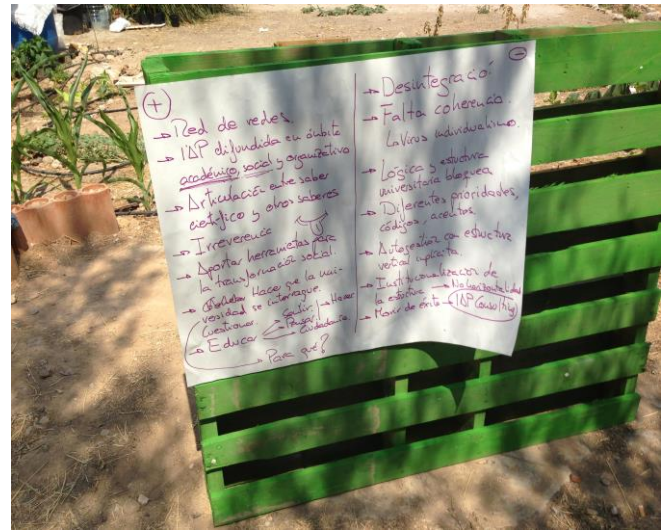 +
→ Red de redes
→ IAP difundida en ámbito
académico, social y organizativo
→ Articulación entre saber
científico y otros saberes
→ Irreverencia
→ Aportar herramientas para
la transformación social.
→ Hace que la uni-
versidad se interrogue.
Cuestionar.
→ Educar
Sentir
Pensar
Hacer
Ciudadanía
→ Para qué?
-
→ Desintegració
→ Falta coherencia.
↳ Virus individualismo.
→ Lógica y estructura
universitaria bloquea
→ Diferentes prioridades,
códigos, acentos.
→ Autogestión con estructura
vertical implícita.
→ Institucionalización de
la estructura → No horizontalidad
→ Morir de éxito → IAP Consulting